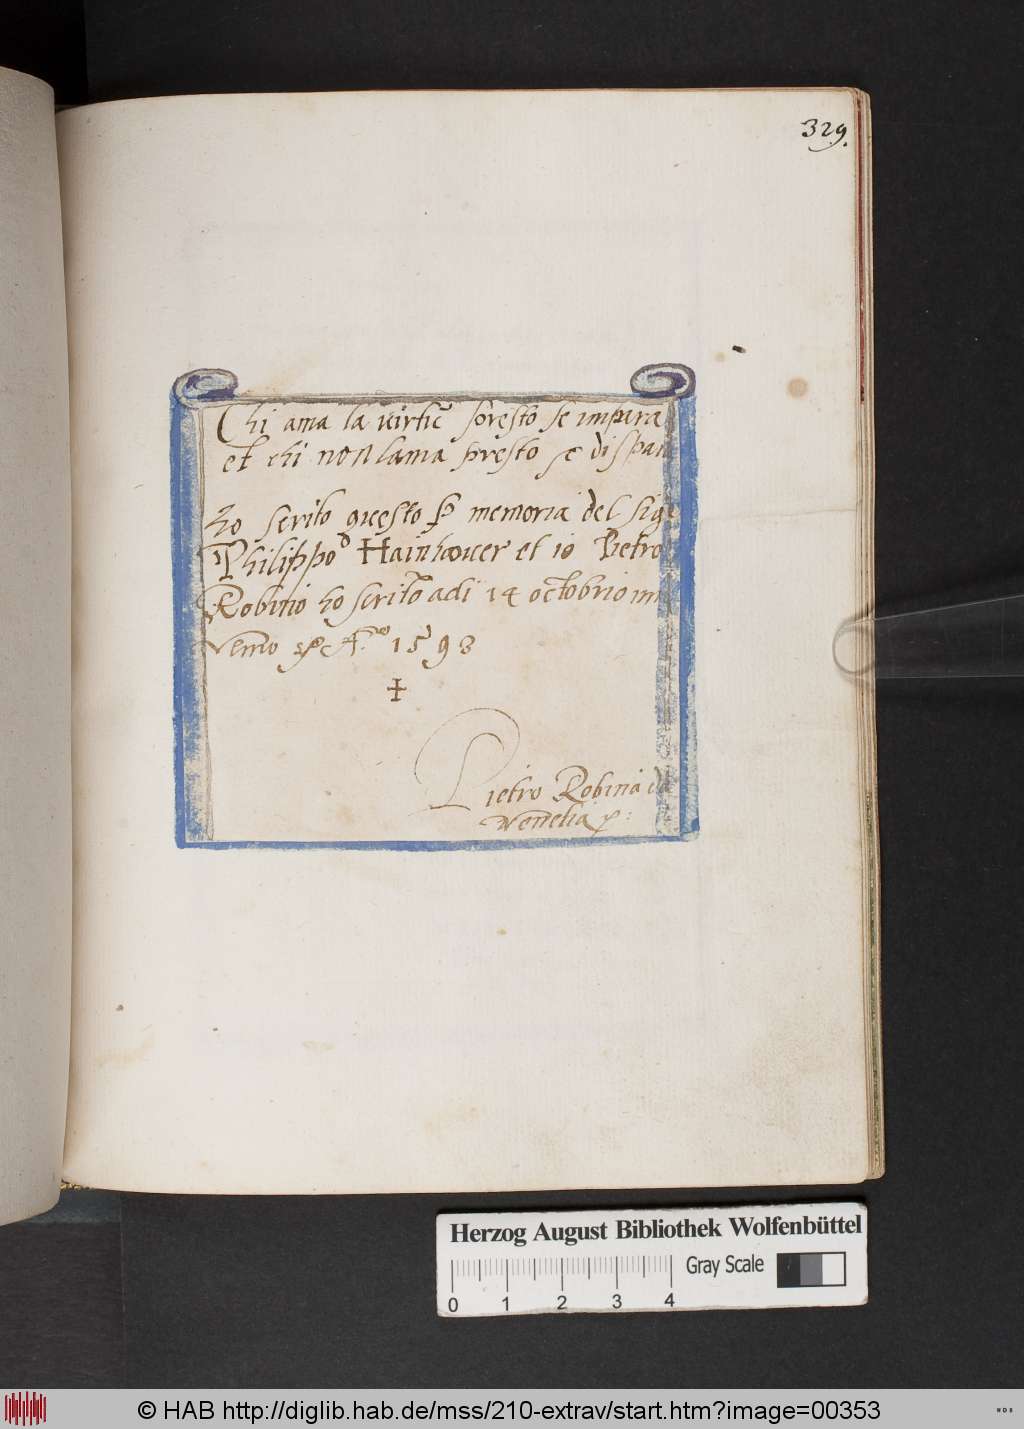 329.
Chi ama la virtù presto se impara
et chi non lama presto se dispar
ho scrito questo ꝑ memoria del sigr
Philippo Hainhower et io Pietro
Robino ho scrito adi 14 octobrio in
A.º 1593
Pietro Robino da
Venetia
Herzog August Bibliothek Wolfenbüttel
Gray Scale
0 1 2 3 4
© HAB http://diglib.hab.de/mss/210-extrav/start.htm?image=00353